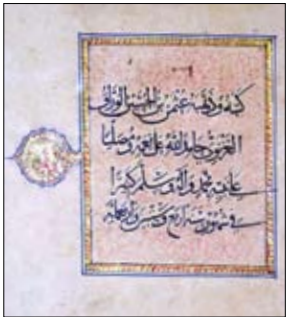 كتبه وذهبه عثمن بن الحسين الوراق
الغزنوي حامدا لله على نعمه ومصليا
على محمد وآله وسلم كثيرا
في شهور سنة اربع وستين واربعمايه